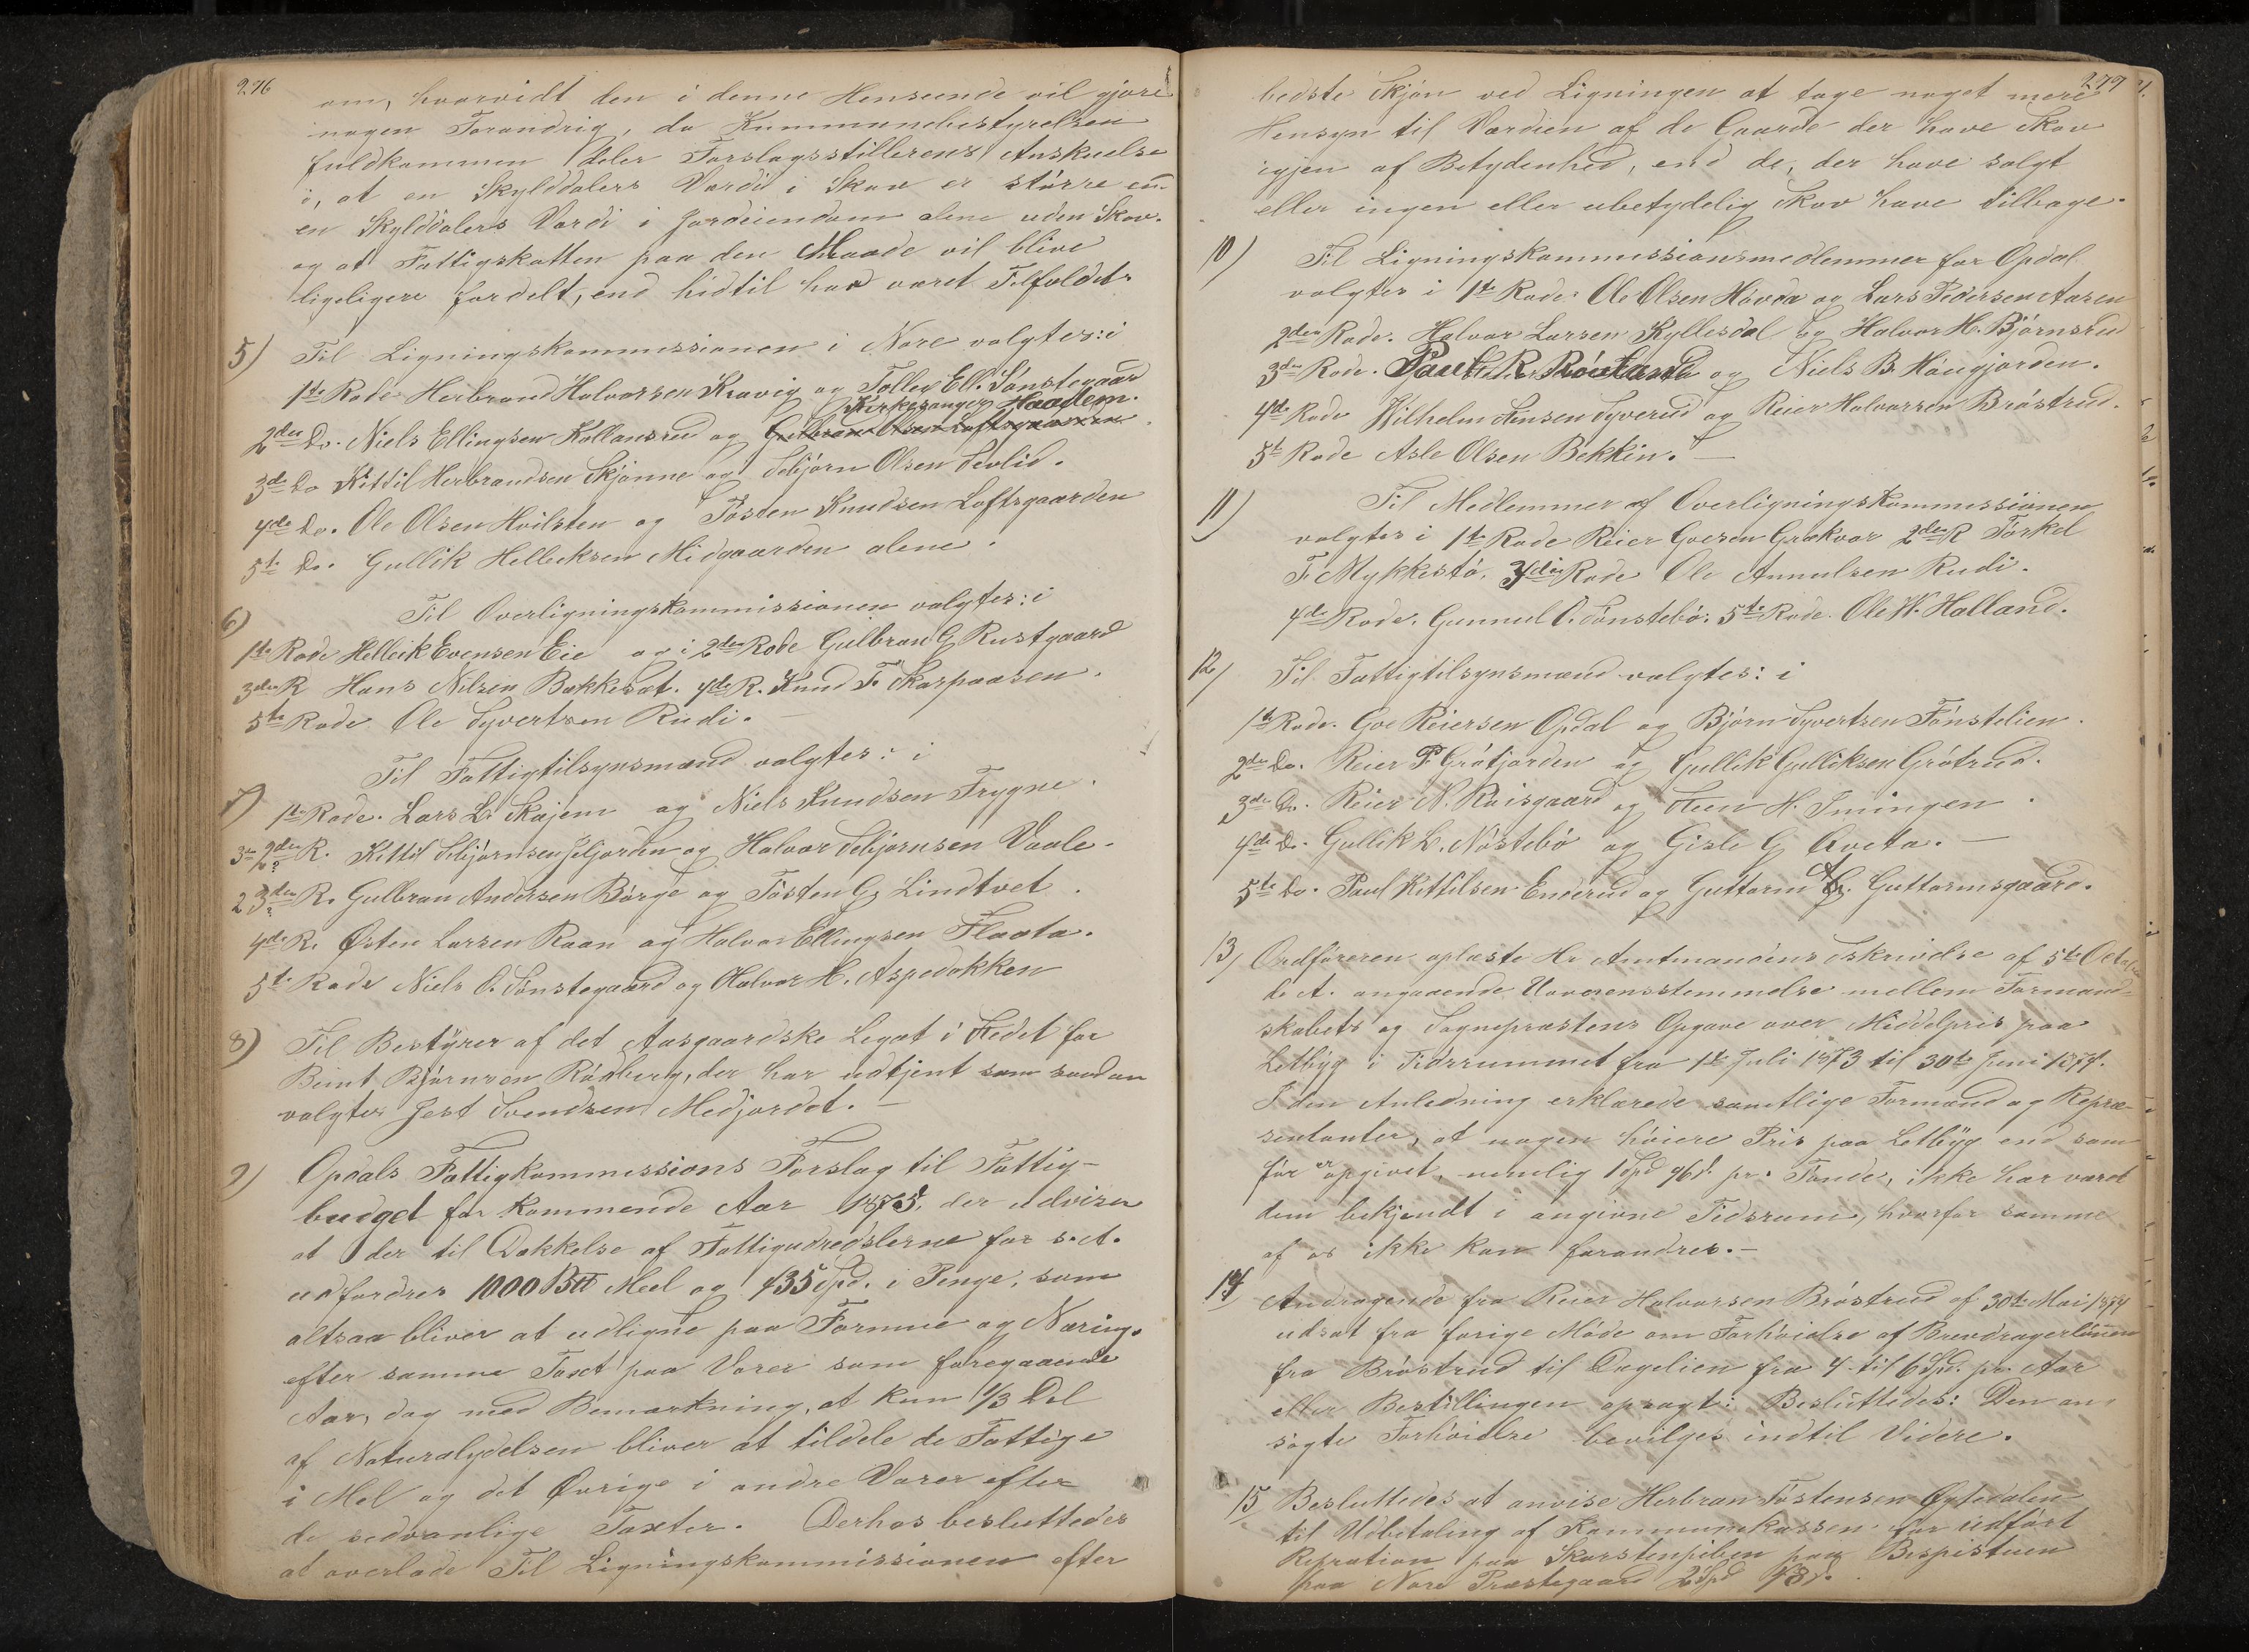 276
om, hvorvidt den i denne Henseende vil gjøre
nogen Forandrig, da Kummunebestyrelsen
fuldkommen deler Forslagsstillerens Anskuelse
i, at en Skylddalers Værdi i Skov er større en
en Skylddalers Værdi i Jordeiendom alene uden Skov.
og at Fattigskatten paa den Maade vil blive
ligeligere fordelt, end hidtil har været Tilfældet.
5) Til Ligningskommissionen i Nore valgtes: i
1ste Rode Herbrand Halvorsen Kravig og Tollev Ell. Sønstegaar
Kirkesanger Haadem.
2den Do. Niels Ellingsen Kollansrud og Gulbrand Olsen Loftsgaarden
3de Do Kittil Herbrandsen Skjønne og Sebjørn Olsen Sevlid.
4de Do. Ole Olsen Hvilsten og Tosten Knudsen Loftsgaarden
5te Do. Gullik Helleksen Midgaarden alene.
6) Til Overligningskommissionen valgtes: i
1te Rode Helleik Evensen Eie og i 2den Rode Gulbran G Rustgaard
3den R Hans Nilsen Bakkesæt. 4de R. Knud T. Skarpaasen.
5te Rode Ole Syvertsen Rudi.
7) Til Fattigtilsynsmænd valgtes: i
1te Rode. Lars L. Skajem og Niels Knudsen Trygne.
3de 2den R. Kittil Sebjørnsen Jeljorden og Halvor Sebjørnsen Vaale.
2 3den R. Gulbran Andersen Børge og Tosten G Lindtvet.
4de R. Østen Larsen Raan og Halvor Ellingsen Flaata.
5te Rode Niels O. Sønstegaard og Halvor H. Aspedokken
8) Til Bestyrer af det Aasgaardske Legat i Stedet for
Bernt Bjørnsen Rødberg, der har udtjent som saadan
valgtes Gest Svendsen Medjordet.
9) Opdals Fattigkommissions Forslag til Fattig-
budget for kommende Aar 1875, der udviser
at der til Dækkelse af Fattigudredslerne for s. A.
udfordres 1000 B℔ Meel og 435 Spd. i Penge, som
altsaa bliver at udligne paa Formue og Næring.
efter samme Taxt paa Varer som foregaaende
Aar, dog med Bemærkning, at kun 1/3 Del
af Naturalydelsen bliver at tildele de Fattige
i Mel og det Øvrige i andre Varer efter
de sedvanlige Taxter. Derhos besluttedes
at overlade Til Ligningskommissionen efter
277
bedste Skjøn ved Ligningen at tage noget mere
Hensyn til Værdien af de Gaarde der have Skov
igjen af Betydenhed, end de, der have solgt
eller ingen eller ubetydelig Skov have tilbage.
10) Til Ligningskommissionsmedlemmer for Opdal
valgtes i 1te Rode. Ole Olsen Hovda og Lars Pedersen Aasen
2den Rode. Halvor Larsen Kyllesdal og Halvor H. Bjørnsrud
3den Rode. Paul R. og Niels B. Haugjorden.
4de Rode Wilhelm Jensen Syverud og Reier Halvorsen Brøstrud.
5te Rode Asle Olsen Bekkin.
11) Til Medlemmer af Overligningskommissionen
valgtes i 1te Rode Reier Goesen Grækvar 2den R Torkel
T. Mykkestø, 3die Rode Ole Annulsen Rudi.
4de Rode. Gunnul O. Sønstebø. 5te Rode. Ole W. Halland.
12) Til Fattigtilsynsmænd valgtes: i
1te Rode. Goe Reiersen Opdal og Bjørn Syvertsen Tønstelien.
2den Do. Reier P Grøtjorden og Gullik Gulliksen Grøtrud.
3de Do. Reier N. Roisgaard og Steen H. Imingen.
4de Do. Gullik L. Nøstebø og Gisle G Aveta.
5te Do. Paul Kittilsen Enderud og Guttorm A. Guttormsgaard.
13) Ordføreren oplæste Hr Amtmandens Skrivelse af 5te October
d. A. angaaende Uoverensstemmelse mellem Formand-
skabets og Sognepræstens Opgave over Middelpris paa
Letbyg i Tidsrummet fra 1te Juli 1873 til 30te Juni 1874.
I den Anledning erklærede samtlige Formænd og Repræ-
sentanter, at nogen høiere Pris paa Letbyg end som
før er opgivet, nemlig 1 Spd 96 s. pr. Tønde, ikke har været
dem bekjendt i angivne Tidsrum, hvorfor samme
af os ikke kan forandres.
14) Andragende fra Reier Halvorsen Brøstrud af 30te Mai 1874
udsat fra forige Møde om Forhøielse af Brevdragerlønnen
fra Brøstrud til Dagelien fra 4 til 6 Spd. pr. Aar
eller Bestillingen opsagt: Besluttedes: Den an-
søgte Forhøielse bevilges indtil Videre.
15 Besluttedes at anvise Herbran Tostensen
til Udbetaling af Kommunekassen for udført
Repration paa Skorstenpiben paa Bispistuen
paa Nore Præstegaard 2 Spd 48 s.